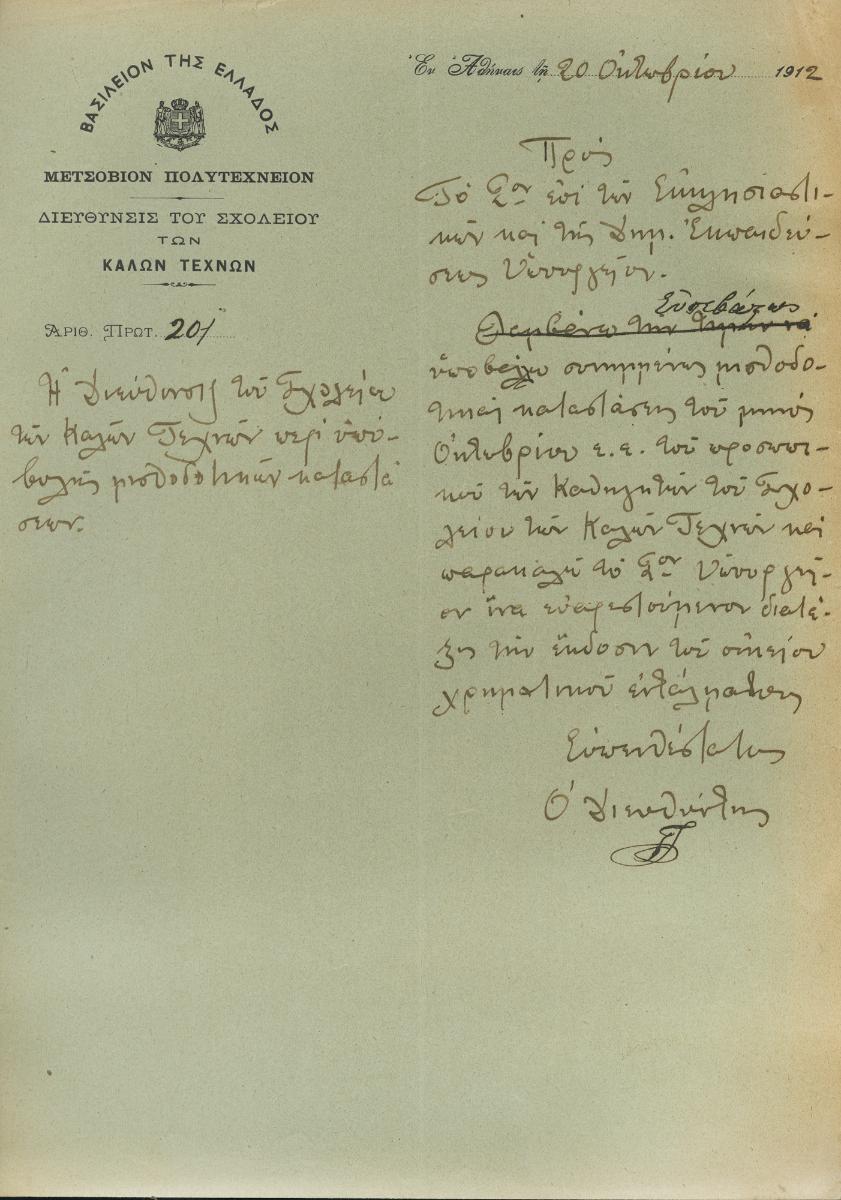 ΒΑΣΙΛΕΙΟΝ ΤΗΣ ΕΛΛΑΔΟΣ
ΜΕΤΣΟΒΙΟΝ ΠΟΛΥΤΕΧΝΕΙΟΝ
ΔΙΕΥΘΥΝΣΙΣ ΤΟΥ ΣΧΟΛΕΙΟΥ
ΤΩΝ
ΚΑΛΩΝ ΤΕΧΝΩΝ
ΑΡΙΘ. ΠΡΩΤ. 201
Ἡ Διεύθυνσις τοῦ Σχολείου
τῶν Καλῶν Τεχνῶν περὶ ὑπο-
βολῆς μισθοδοτικῶν καταστά
σεων.
Ἐν Ἀθήναις τῇ 20 Ὀκτωβρίου 1912
Πρὸς
Τὸ Σ^ον ἐπὶ τῶν Ἐκκλησιαστι-
κῶν καὶ τῆς Δημ. Ἐκπαιδεύ-
σεως Ὑπουργεῖον.
Εὐσεβάστως
Λαμβάνω τὴν τιμὴν νὰ
ὑποβάλλω συνημμένως μισθοδο-
τικὰς καταστάσεις τοῦ μηνὸς
Ὀκτωβρίου ἐ.ἔ. τοῦ προσωπι-
κοῦ τῶν Καθηγητῶν τοῦ Σχο-
λείου τῶν Καλῶν Τεχνῶν καὶ
παρακαλῶ τὸ Σ^ον Ὑπουργεῖ-
ον ἵνα εὐαρεστούμενον διατά-
ξῃ τὴν ἔκδοσιν τοῦ οἰκείου
χρηματικοῦ ἐντάλματος
Εὐπειθέστατος
Ὁ Διευθύντης